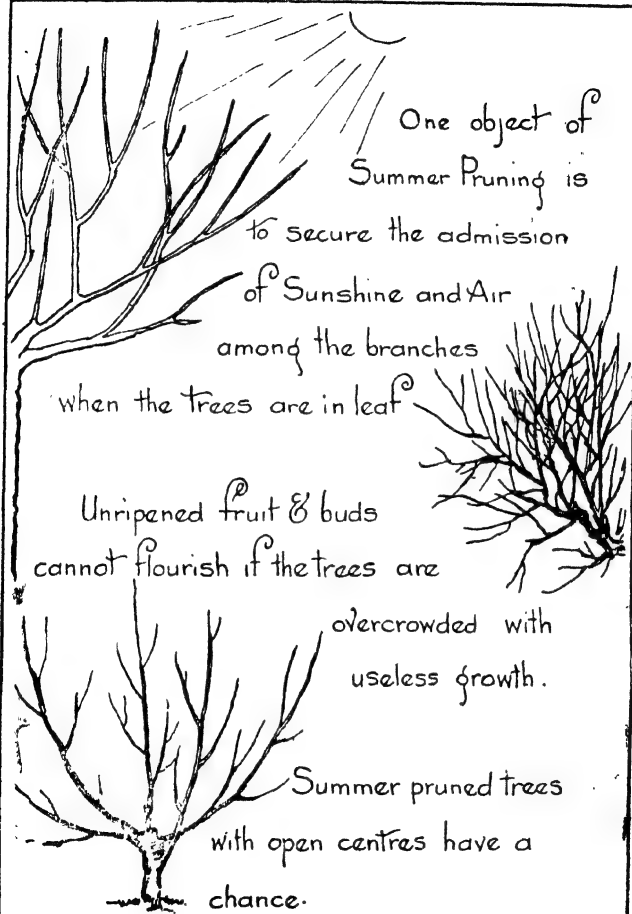 One object of
Summer Pruning is
to secure the admission
of Sunshine and Air
among the branches
when the trees are in leaf
Unripened fruit & buds
cannot flourish if the trees are
overcrowded with
useless growth.
Summer pruned trees
with open centres have a
chance.